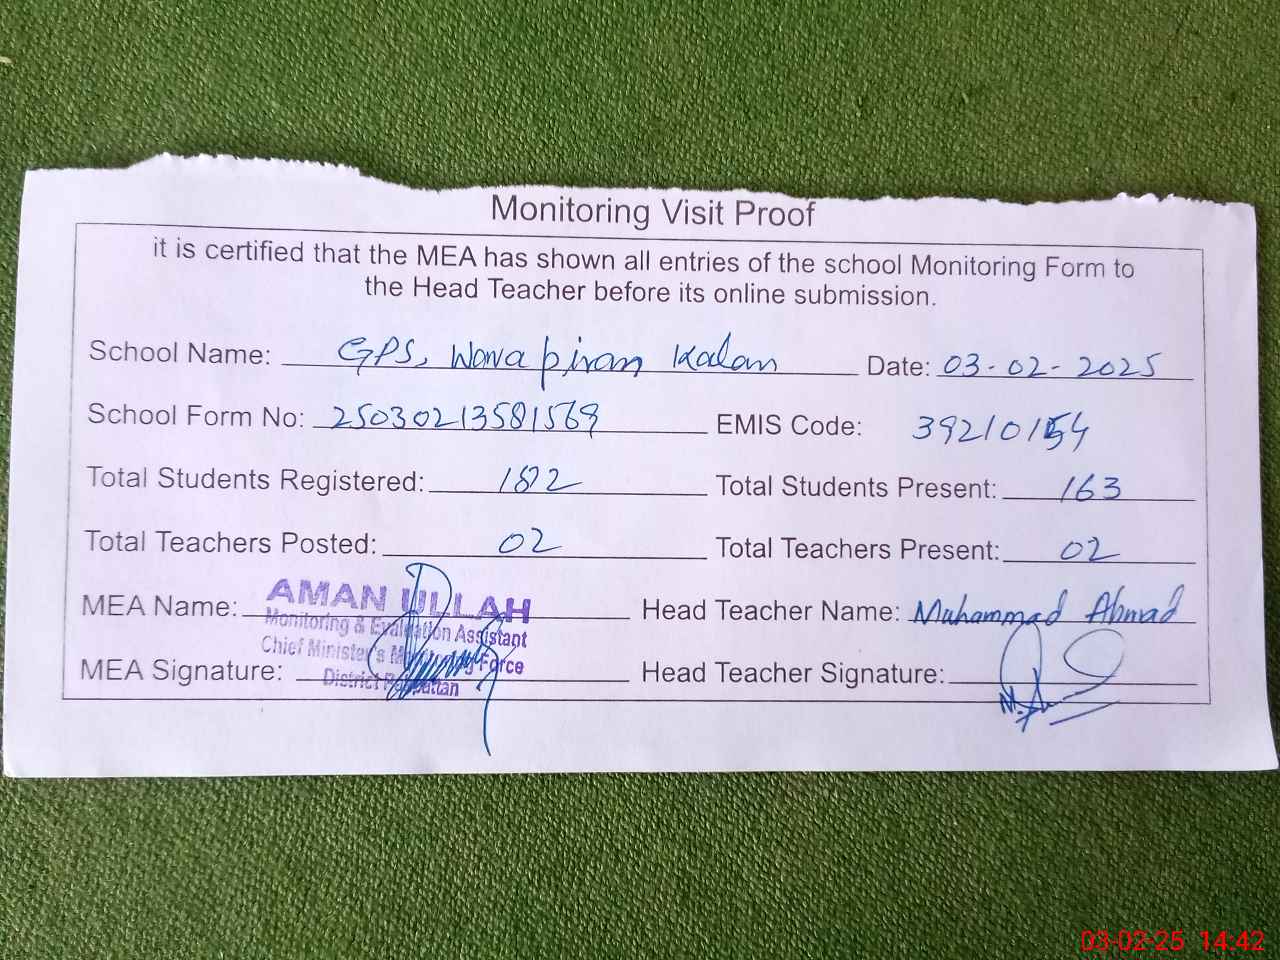 Monitoring Visit Proof
it is certified that the MEA has shown all entries of the school Monitoring Form to
the Head Teacher before its online submission.
School Name: GPS, Wara piran Kalan Date: 03-02-2025
School Form No: 25030213581569 EMIS Code: 39210154
Total Students Registered: 182 Total Students Present: 163
Total Teachers Posted: 02 Total Teachers Present: 02
MEA Name: AMAN ULLAH Head Teacher Name: Muhammad Ahmad
Monitoring & Evaluation Assistant
Chief Minister's Monitoring Force
MEA Signature: Head Teacher Signature:
District Pakpattan
03-02-25 14:42